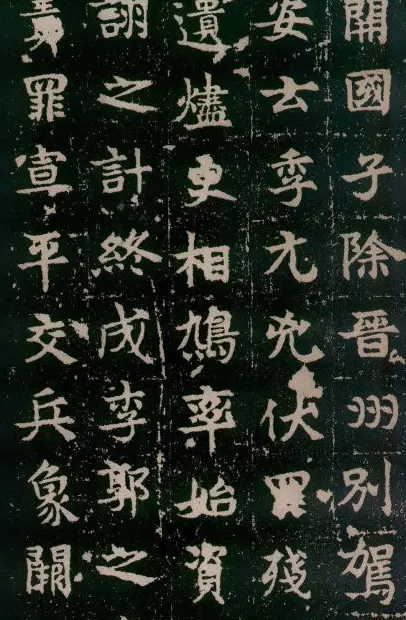 開國子除晉州別駕
安去季元兇伏殘
遺燼更相鳩率始資
詡之計終成李郭之
罪宣平交兵象闕